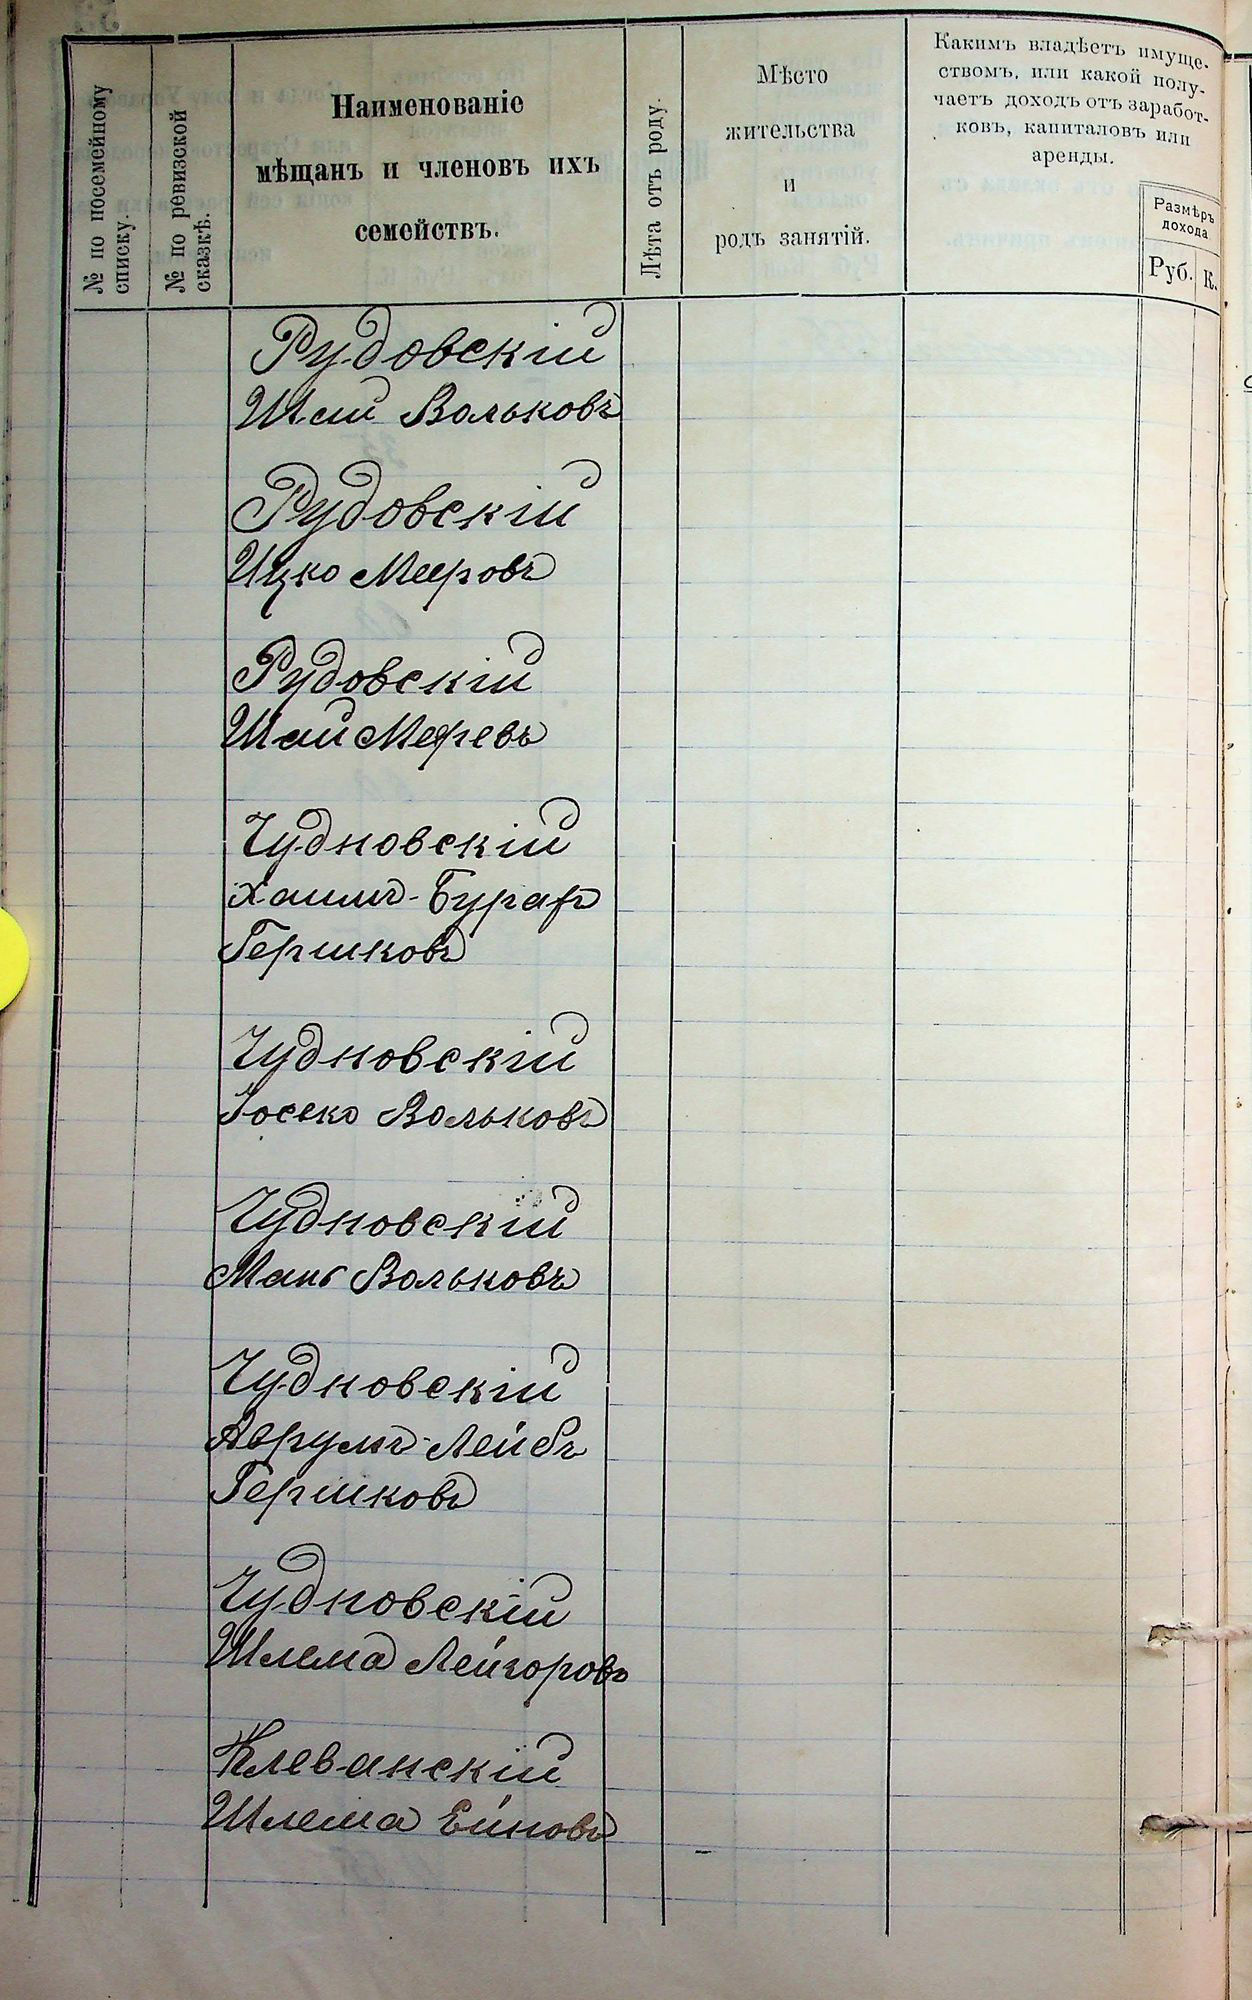 № по посемейному
списку.
№ по ревизской
сказкѣ.
Наименованіе
мѣщанъ и членовъ ихъ
семействъ.
Лѣта отъ роду.
Мѣсто
жительства
и
родъ занятій.
Какимъ владѣетъ имуще-
ствомъ, или какой полу-
чаетъ доходъ отъ заработ-
ковъ, капиталовъ или
аренды.
Размѣръ
дохода
Руб.
К.
Рудовскій
Вольковъ
Рудовскій
Ицко Мееровъ
Рудовскій
Чудновскій
Хаимъ-
Гершковъ
Чудновскій
Іосько Вольковъ
Чудновскій
Вольковъ
Чудновскій
Аврумъ-Лейбъ
Гершковъ
Чудновскій
Шлема Лейзоровъ
Клеванскій
Шлема